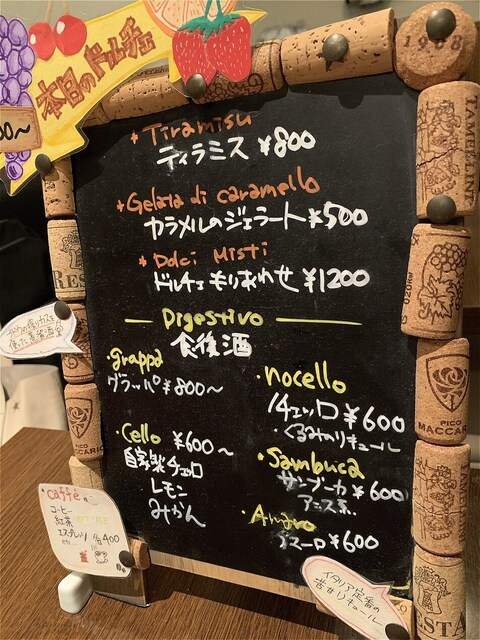 本日のドルチェ
00~
Tiramisu
ティラミス ¥800
Gelata di caramello
カラメルのジェラート ¥500
Dolci Misti
ドルチェもりあわせ ¥1200
Digestivo
食後酒
・grappa
グラッパ ¥800〜
・nocello
ノチェッロ ¥600
・くるみのリキュール
・Cello ¥600〜
自家製チェッロ
レモン
みかん
・Sambuca
サンブーカ ¥600
アニス系
・Amaro
アマーロ ¥600
caffe
コーヒー
紅茶
エスプレッソ 各400
etc
イタリア定番の
苦甘リキュール
1908
TAMELLINI
PICO
MACCARIO
REST
PICO
MACCARIO
RESTA